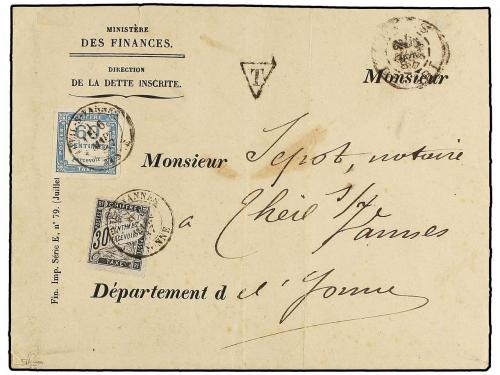 MINISTÈRE
DES FINANCES.
DIRECTION
DE LA DETTE INSCRITE.
T
Monsieur
60
CENTIMES
PERCEVOIR
TAXE
Monsieur Jepot, notaire
à Theil s/
Vannes
CHIFFRE
30
CENTIMES
À PERCEVOIR
TAXE
Département d e l'Yonne
Fin. Imp. Série E. n° 79. (Juillet